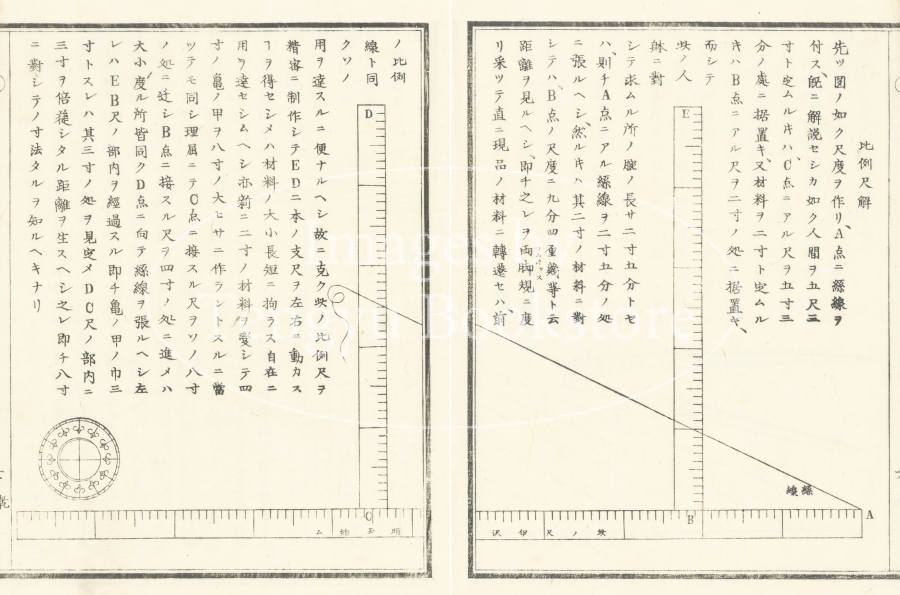 比例尺解
先ッ図ノ如ク尺度ヲ作リA点ニ絲線ヲ
付ス、既ニ解説セシカ如ク人間ヲ五尺三
寸ト定ムル𪜈ハC点ニアル尺ヲ五寸三
分ノ處ニ据置キ、又材料ヲ二寸ト定ムル
𪜈ハB点ニアル尺ヲ二寸ノ処ニ据置キ、
而シテ
此ノ人
体ニ對
シテ求ムル所ノ腕ノ長サ二寸五分トセ
ハ、則チA点ニアル絲線ヲ二寸五分ノ処
ニ張ルヘシ、然ル𪜈ハ其二寸ノ材料ニ對
シテハB点ノ尺度ニ九分四重等ト云
距離ヲ見ルヘシ、即チ之レヲ両脚規ニ度
リ采ッテ直ニ現品ノ材料ニ轉遷セハ、前
E
B
A
絲線
ノ比例
線ト同
クソノ
用ヲ達スルニ便ナルヘシ故ニ克ク此ノ比例尺ヲ
精密ニ制作シテED二本ノ支尺ヲ左右ニ動カス
ヿヲ得セシメハ材料ノ大小長短ニ拘ラス自在ニ
用ヲ達セシムヘシ亦前ニ二寸ノ材料ヲ変シテ四
寸ノ亀ノ甲ヲ八寸ノ大ヒサニ作ランヿスルニ當
ツテモ同シ理屈ニテC点ニ接スル尺ヲソノ八寸
ノ処ニ迁シB点ニ接スル尺ヲ四寸ノ処ニ進メハ
大小度ル所皆同クD点ニ向テ絲線ヲ張ルヘシ左
レハEB尺ノ部内ヲ經過スル即チ亀ノ甲ノ巾三
寸トスレハ其三寸ノ処ヲ見定メDC尺ノ部内ニ
三寸ヲ倍蓰シタル距離ヲ生スヘシ之レ即チ八寸
ニ對シテノ寸法タルヲ知ルヘキナリ
D
C
乾
Images by
Tenrin Bookstore